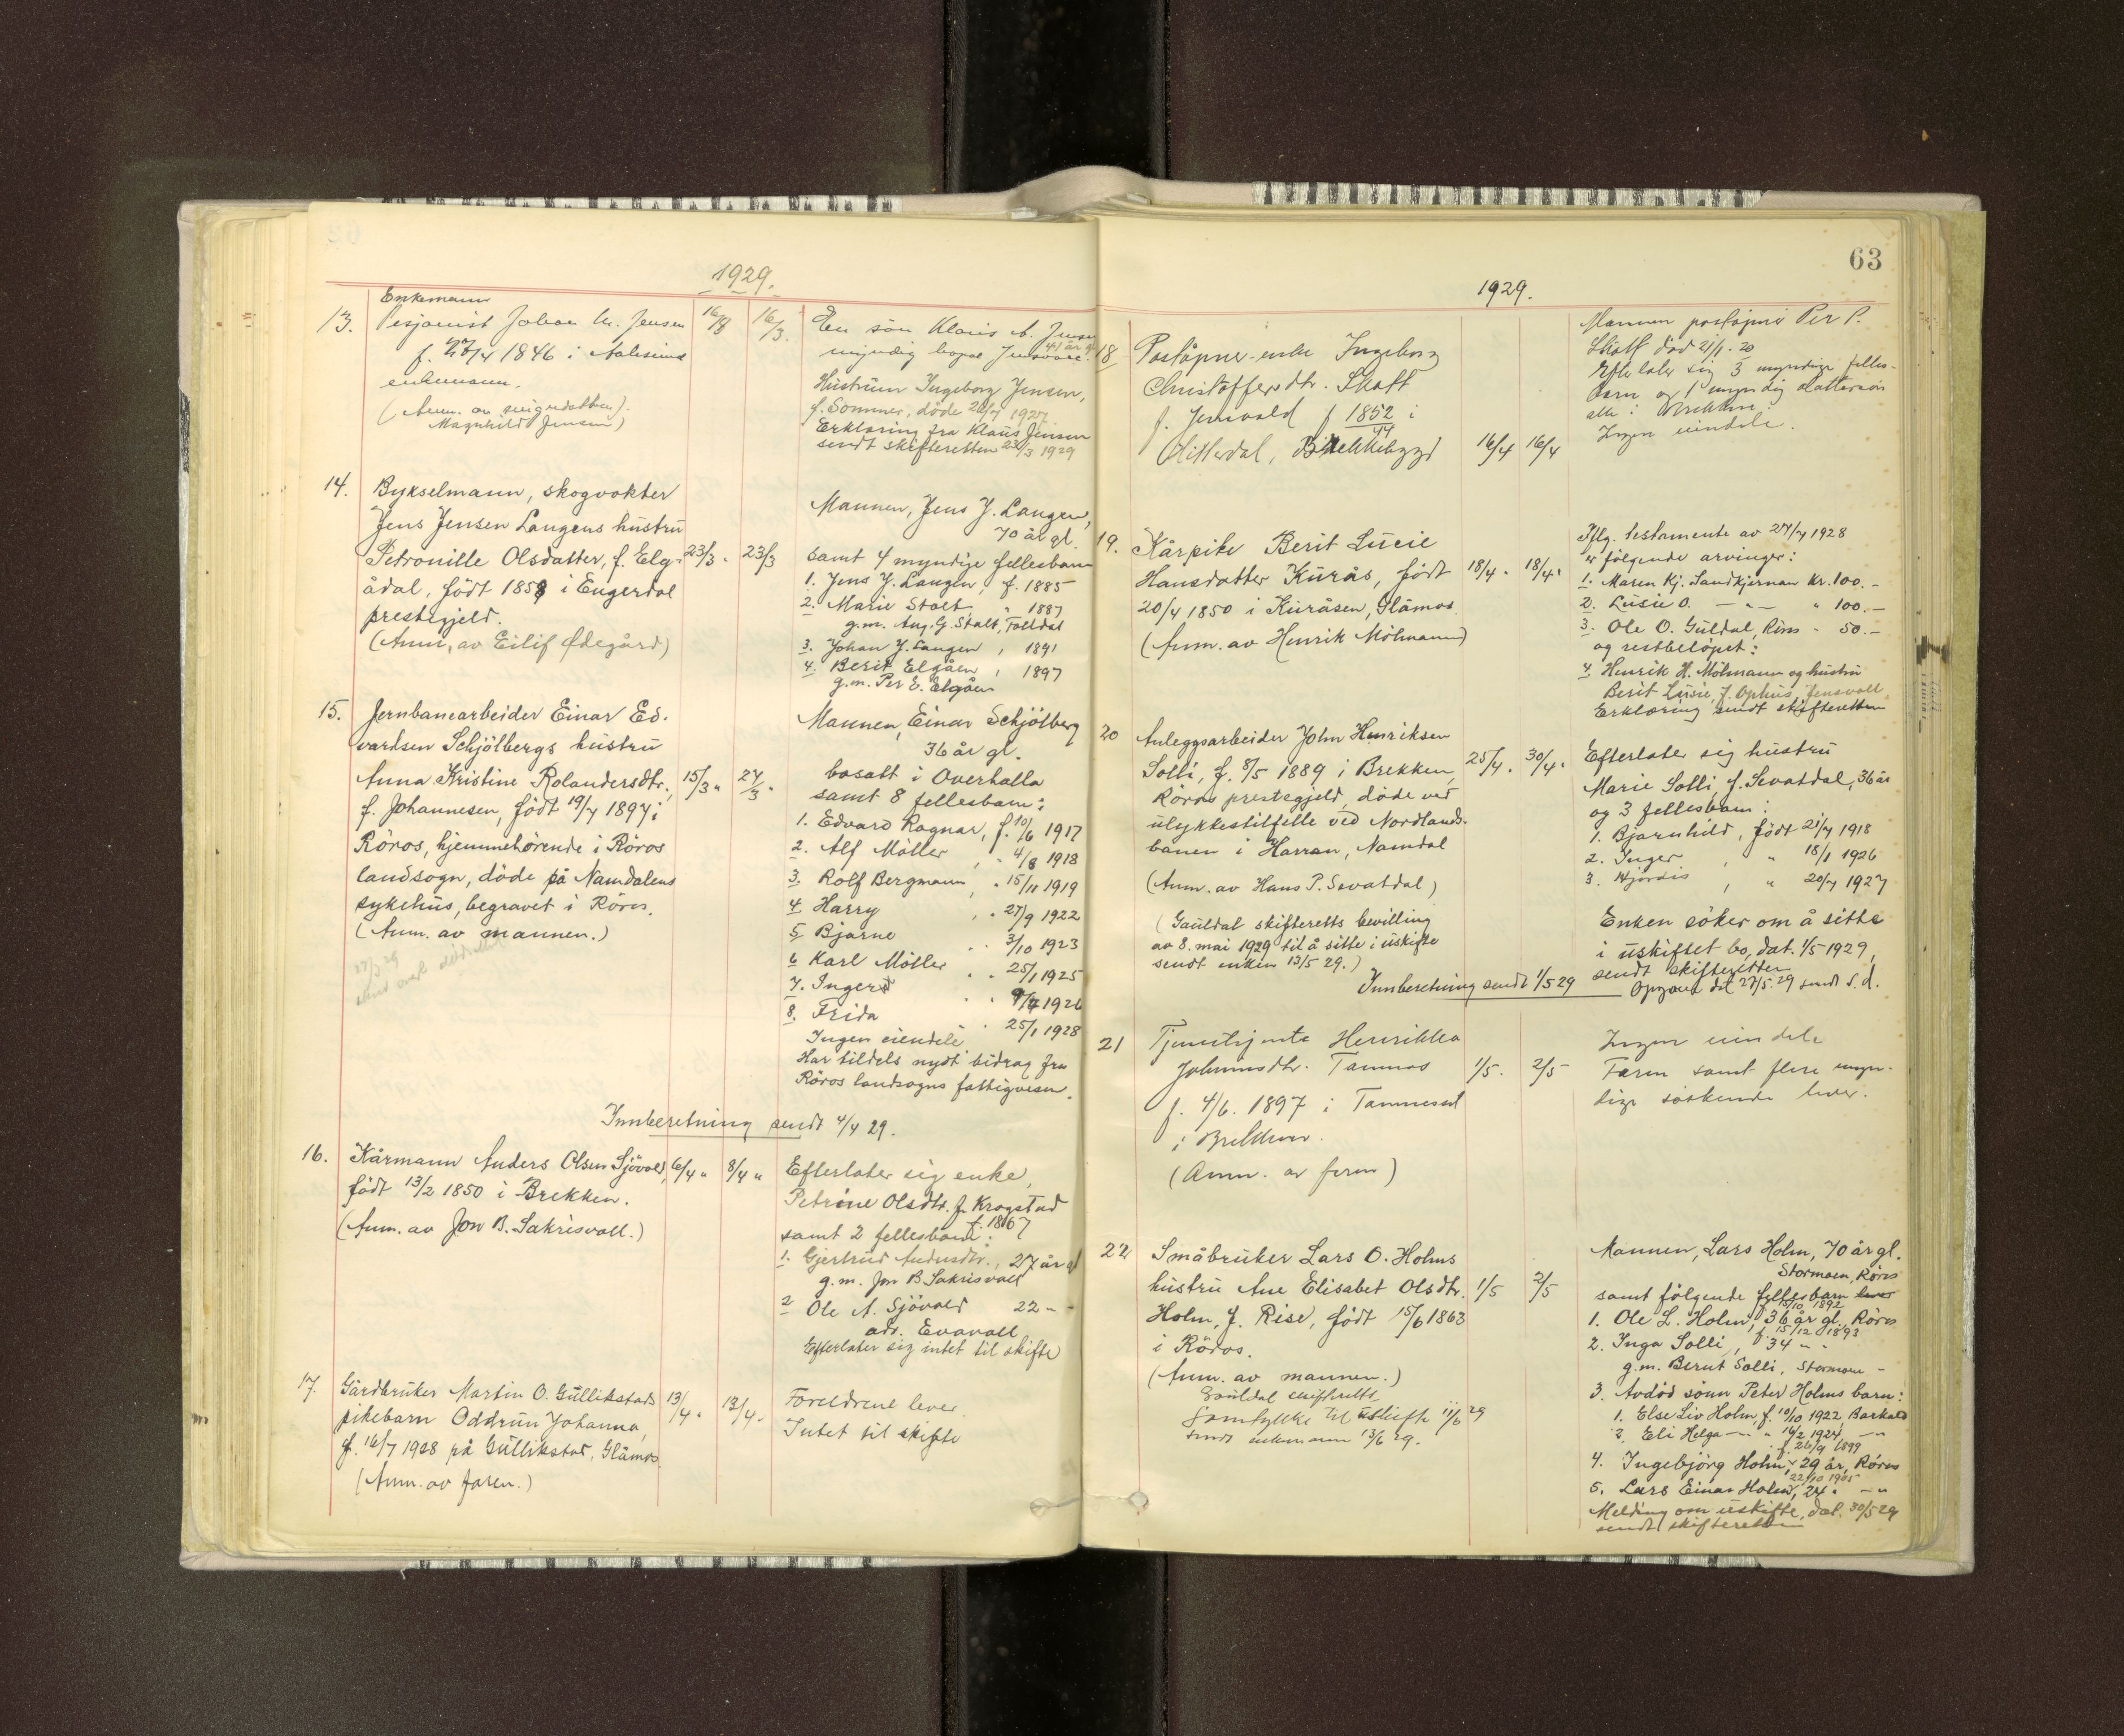 1929.
Enkemann
13. Pesjonist Johan Chr. Jensen 16/3 16/3. En sön Klaus A. Jensen
f. 27/4 1846 i Aalesund myndig bopæl Jensvoll. 41 år gl
enkemann.
(Anm. av svigerdatter
Magnhild Jensen)
Hustruen Ingeborg Jensen,
f. Sommer, döde 1927
Erklæring fra Klaus Jensen
sendt skifteretten 23/3 1929
14. Bykselmann, skogvokter
Jens Jensen Langens hustru
Petronille Olsdatter, f. Elg- 23/3 - 23/3
ådal, född 1858 i Engerdal
prestegjeld.
(Anm. av Eilif Ødegård)
Mannen, Jens J. Langen,
70 år gl.
samt 4 myndige fellesbarn
1. Jens J. Langen, f. 1885
2. Marie Stolt " 1887
g.m. Aug. G. Stolt, Folldal
3. Johan J. Langen, 1891
4. Berit Elgåen, 1897
g.m. Per E. Elgåen
15. Jernbanearbeider Einar Ed-
vardsen Schjölbergs hustru
Anna Kristine Rolandersdtr., 15/3 " 27/3 "
f. Johannesen, född 19/7 1897 i
Röros, hjemmehörende i Röros
landsogn, döde på Namdalens
sykehus, begravet i Röros.
(Anm. av mannen.)
27/3 29
Mannen, Einar Schjölberg
36 år gl.
bosatt i Overhalla
samt 8 fellesbarn:
1. Edvard Ragnar, f. 10/6 1917
2. Alf Möller, " 4/8 1918
3. Rolf Bergmann, " 15/11 1919
4. Harry, " 27/9 1922
5. Bjarne " " 3/10 1923
6. Karl Möller " " 25/1 1925
7. Inger " " 9/7 1926
8. Frida " 25/1 1928
Ingen eiendele
Har tildels nydt bidrag fra
Röros landsogns fattigvesen.
Innberetning sendt 4/4 29.
16. Kårmann Anders Olsen Sjövold, 6/4 " 8/4 "
född 13/2 1850 i Brekken.
(Anm. av Jon B. Sakrisvoll.)
Efterlater sig enke,
Petrine Olsdtr. f. Krogstad
f. 1867
samt 2 fellesbarn:
1. Gjertrud Andersdtr., 27 år gl
g.m. Jon B. Sakrisvoll
2. Ole A. Sjövold 22 - -
adr. Evavoll
Efterlater sig intet til skifte
17. Gårdbruker Martin O. Gullikstads 13/4 " 13/4 -
pikebarn Oddrun Johanna,
f. 16/7 1928 på Gullikstad, Glåmos.
(Anm. av faren.)
Foreldrene lever.
Intet til skifte
63
1929.
18 Poståpner-enke Ingeborg
Christoffersdtr. Skott
f. Jensvold f 1852 i
44
Hitterdal, Brekkebygd 16/4 16/4
Mannen poståpner Per P.
Skott död 21/1 - 20
Efterlater sig 3 myndige felles-
barn og 1 myndig dattersön
alle i Brekken.
Ingen eiendele.
19. Kårpike Berit Lucie
Hansdatter Kurås, född 18/4 " 18/4 "
20/4 1850 i Kuråsen, Glåmos.
(Anm. av Henrik Mölmann)
Iflg. testamente av 27/7 1928
er fölgende arvinger:
1. Maren Kj. Sandkjernan Kr. 100. -
2. Lusie O. — " — " 100. —
3. Ole O. Guldal, Röros - 50. —
og restbelöpet:
4. Henrik H. Mölmann og hustru
Berit Lusie, f. Ophus, Jensvoll.
Erklæring sendt skifteretten
20 Anleggsarbeider John Henriksen
Solli, f. 8/5 1889 i Brekken, 25/4 " 30/4 "
Röros prestegjeld, döde ved
ulykkestilfelle ved Nordlands-
banen i Harran, Namdal
(Anm. av Hans P. Sevatdal)
(Gauldal skifteretts bevilling
av 8. mai 1929 til å sitte i uskifte
sendt enken 13/5 29.)
Efterlater sig hustru
Marie Solli, f. Sevatdal, 36 år
og 3 fellesbarn:
1. Bjarnhild, född 21/7 1918
2. Inger, " 18/1 1926
3. Hjördis, " 20/7 1927
Enken söker om å sitte
i uskiftet bo, dat. 1/5 1929,
sendt skifteretten
Innberetning sendt 1/5 29
Opgave dat 27/5 29 sendt s.d.
21 Tjenestejente Henrikka
Johannesdtr. Tamnes 1/5. 2/5
f. 4/6. 1897 i Tamneset
i Brekken.
(Anm. av faren)
Ingen eiendele
Faren samt flere myn-
dige söskende lever.
22 Småbruker Lars O. Holms
hustru Ane Elisabet Olsdtr. 1/5 2/5
Holm, f. Rise, född 15/6 1863
i Röros.
(Anm. av mannen.)
Gauldal skifteretts
samtykke til uskifte 11/6 29
sendt enkemannen 13/6 29.
Mannen, Lars Holm, 70 år gl.
Stormoen, Röros
samt fölgende fellesbarn lever
f. 15/10 1892
1. Ole L. Holm, 36 år gl. Röros
f. 15/12 1893
2. Inga Solli, 34 " -
g.m. Bernt Solli, Stormoen -
3. Avdöd sönn Peter Holms barn:
1. Else Liv Holm, f. 10/10 1922, Barkald
2. Eli Helga — " — " 16/2 1924, — " —
f. 26/9 1899
4. Ingebjörg Holm, 29 år, Röros
22/10 1905
5. Lars Einar Holm, 24 " — "
Melding om uskifte, dat. 30/5 29
sendt skifteretten